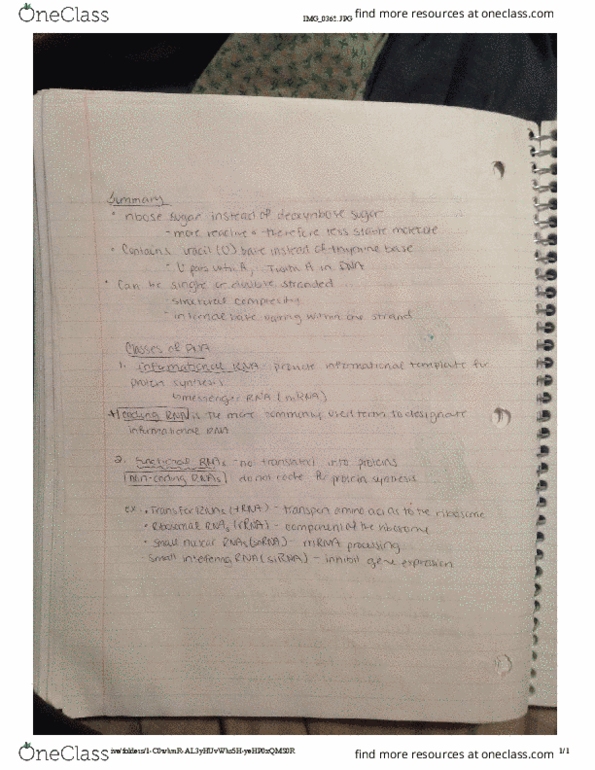 OneClass
IMG_0362.JPG
find more resources at oneclass.com
Summary
• ribose sugar instead of deoxyribose sugar
- more reactive & therefore less stable molecule
• Contains uracil (U) base instead of thymine base
- U pairs with A, T with A in DNA
• Can be single or double stranded
- structural complexity
- internal base pairing within one strand
Classes of RNA
1. informational RNA - provide informational template for
protein synthesis
↳ messenger RNA (mRNA)
* coding RNA is the more commonly used term to designate
informational RNA
2. Functional RNAs - no translation into proteins
(non-coding RNAs) do not code for protein synthesis
ex. • Transfer RNAs (tRNA) - transport amino acids to the ribosome
• Ribosomal RNAs (rRNA) - component of the ribosome
• small nuclear RNAs (snRNA) - mRNA processing
Small interfering RNA (siRNA) - inhibit gene expression
OneClass
1/1
find more resources at oneclass.com